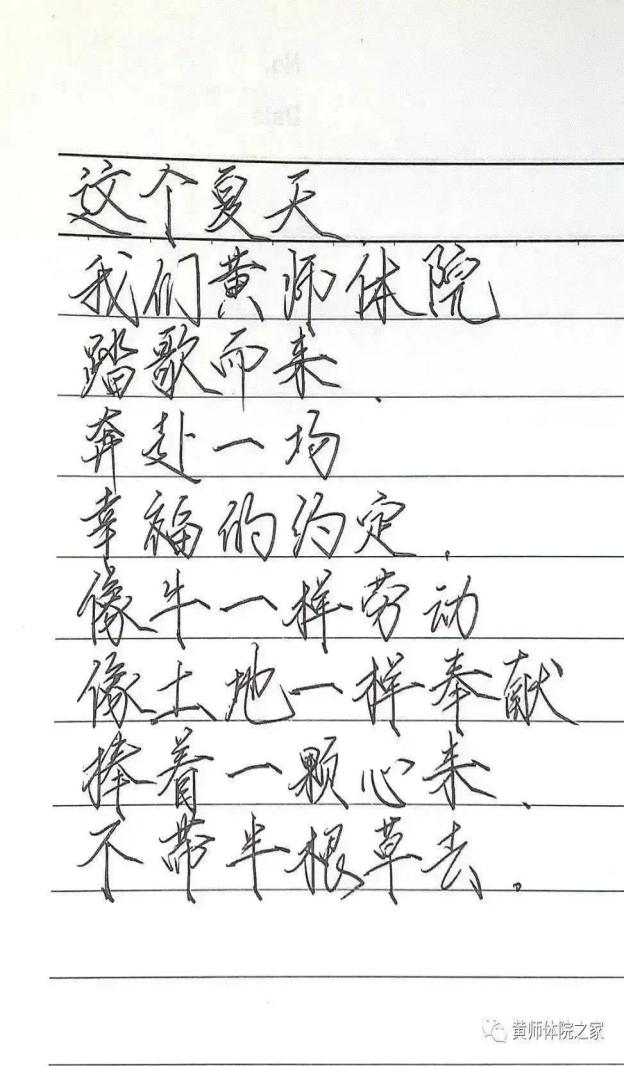 这个夏天
我们黄师体院
踏歌而来、
奔赴一场
幸福的约定、
像牛一样劳动
像土地一样奉献
捧着一颗心来、
不带半根草去。
黄师体院之家